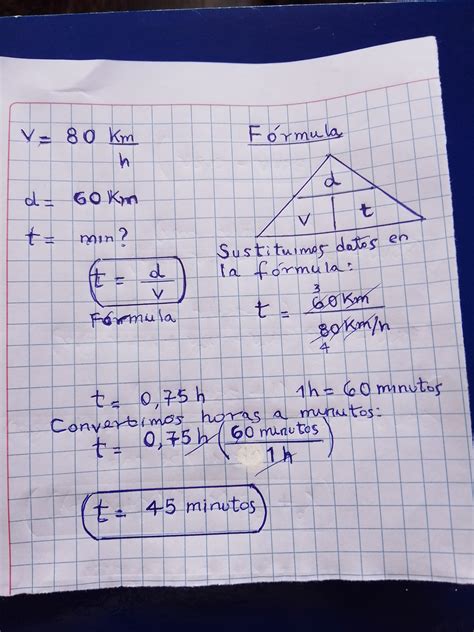 V = 80 Km/h
d = 60 Km
t = min?
t = d/v
Fórmula
Fórmula
d
v t
Sustituimos datos en
la fórmula:
t = 60 Km / 80 Km/h
3
4
t = 0,75 h
1h = 60 minutos
Convertimos horas a minutos:
t = 0,75 h (60 minutos / 1 h)
t = 45 minutos